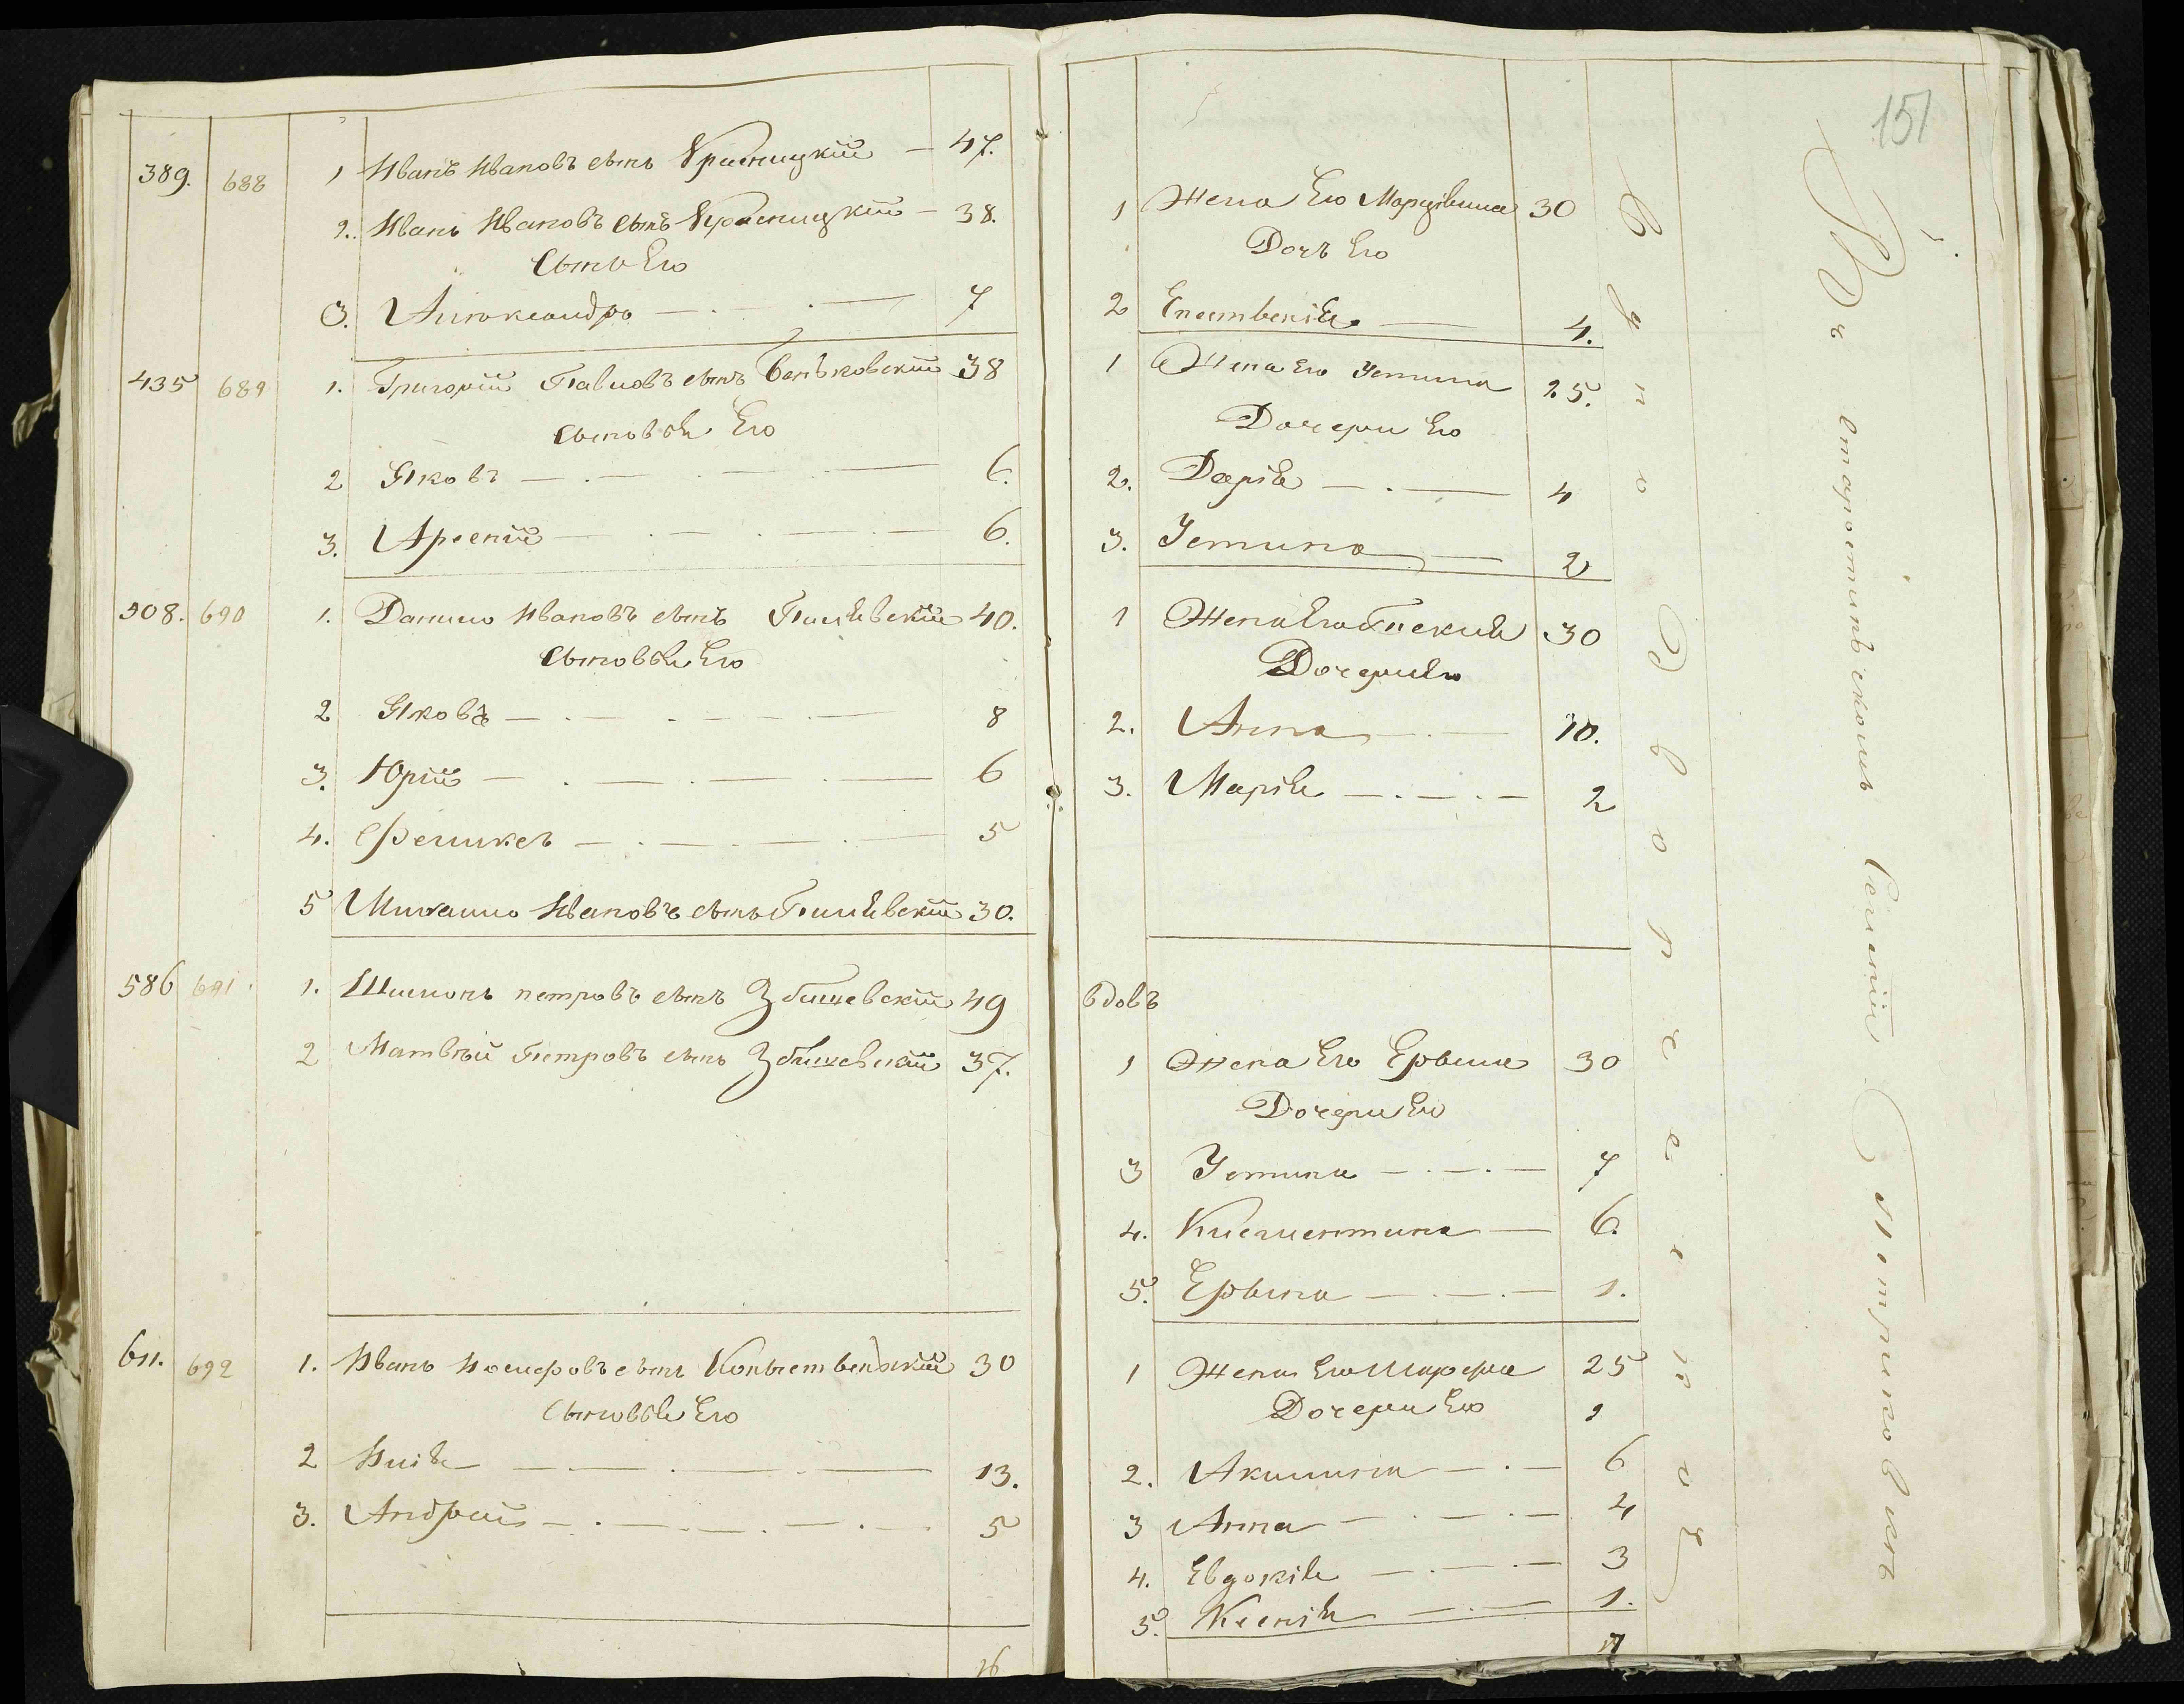 389. 688 1 Иванъ Ивановъ сынъ Красницкій — 47.
2. Иванъ Ивановъ сынъ Красницкій — 38.
Сынъ Его
3. Александръ — 7
435 689 1. Григорій Павловъ сынъ Беньковскій 38
Сыновья Его
2 Яковъ — 6.
3. Арсеній — 6.
908. 690 1. Данило Ивановъ сынъ 40.
Сыновья Его
2 Яковъ — 8
3. Юрій — 6
4. Феликсъ — 5
5 Михайло Ивановъ сынъ 30.
586 691. 1. Шимонъ петровъ сынъ Збышевскій 49
2 Матвѣй Петровъ сынъ Збышевскій 37.
611. 692 1. Иванъ Іосифовъ сынъ 30
Сыновья Его
2 Илія — 13.
3. Андрей — 5
16
151
1 Жена Его Марціянна 30
Дочь Его
2 4.
1 Жена Его Устина 25.
Дочери Его
2. Дарія — 4
3. Устина — 2
1 Жена Его Текля 30
Дочери Его
2. Анна — 10.
3. Марія — 2
вдовъ
1 Жена Его 30
Дочери Его
3 Устина — 7
4. Клементина — 6.
5. 1.
1 Жена Его Марфа 25
Дочери Его
2. Акилина — 6
3 Анна — 4
4. Евдокія — 3
5. Ксенія — 1.
17
Въ Старостинѣцкомъ Селеніи